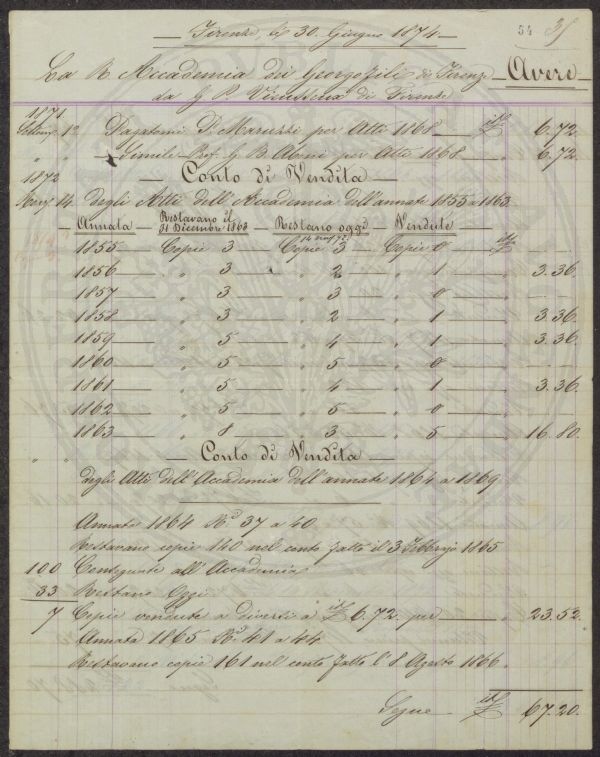 54 35
Firenze, li 30. Giugno 1874.
La R. Accademia dei Georgofili di Firenze Avere
da G. P. Vieusseux di Firenze
1871
12 Pagatomi P. Maruzzi per Atti 1868 itL 6.72.
" " Simile Prof. G. B. per Atti 1868 " 6.72.
1872 Conto di Vendita
14. degli Atti dell'Accademia dell'annate 1855 a 1863.
Annata Restavano il 31 Dicembre 1863 Restano oggi 14 Vendute
1855 Copie 3 Copie 3 Copie 0 itL
1856 " 3 " 2 " 1 " 3.36.
1857 " 3 " 3 " 0 "
1858 " 3 " 2 " 1 " 3.36.
1859 " 5 " 4 " 1 " 3.36.
1860 " 5 " 5 " 0 "
1861 " 5 " 4 " 1 " 3.36.
1862 " 5 " 5 " 0 "
1863 " 8 " 3 " 5 " 16.80.
" " Conto di Vendita
degli Atti dell'Accademia dell'annate 1864 a 1869.
Annata 1864 N.i 37 a 40
Restavano copie 140 nel conto fatto il 3 Febbrajo 1865
100 Consegnate all'Accademia
33 Restano Oggi
7 Copie vendute a diversi a itL 6.72. per " 23.52.
Annata 1865 N.i 41 a 44
Restavano copie 161 nel conto fatto l'8 Agosto 1866.
Segue itL 67.20.